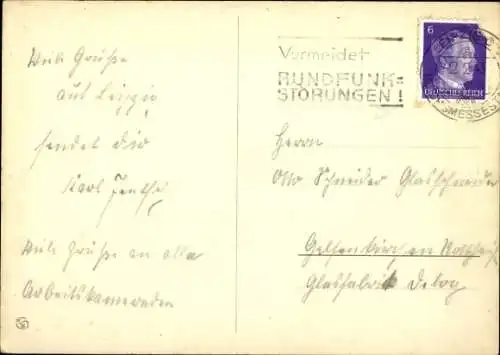 Viele Grüße
aus Leipzig
sendet dir
Karl
Viele Grüße an alle
Arbeitskameraden
Vermeidet
RUNDFUNK=
STÖRUNGEN!
6
DEUTSCHES REICH
MESSES
Herrn
Otto Schneider Glasschneider
Gelsenkirchen
Glasfabrik Delog